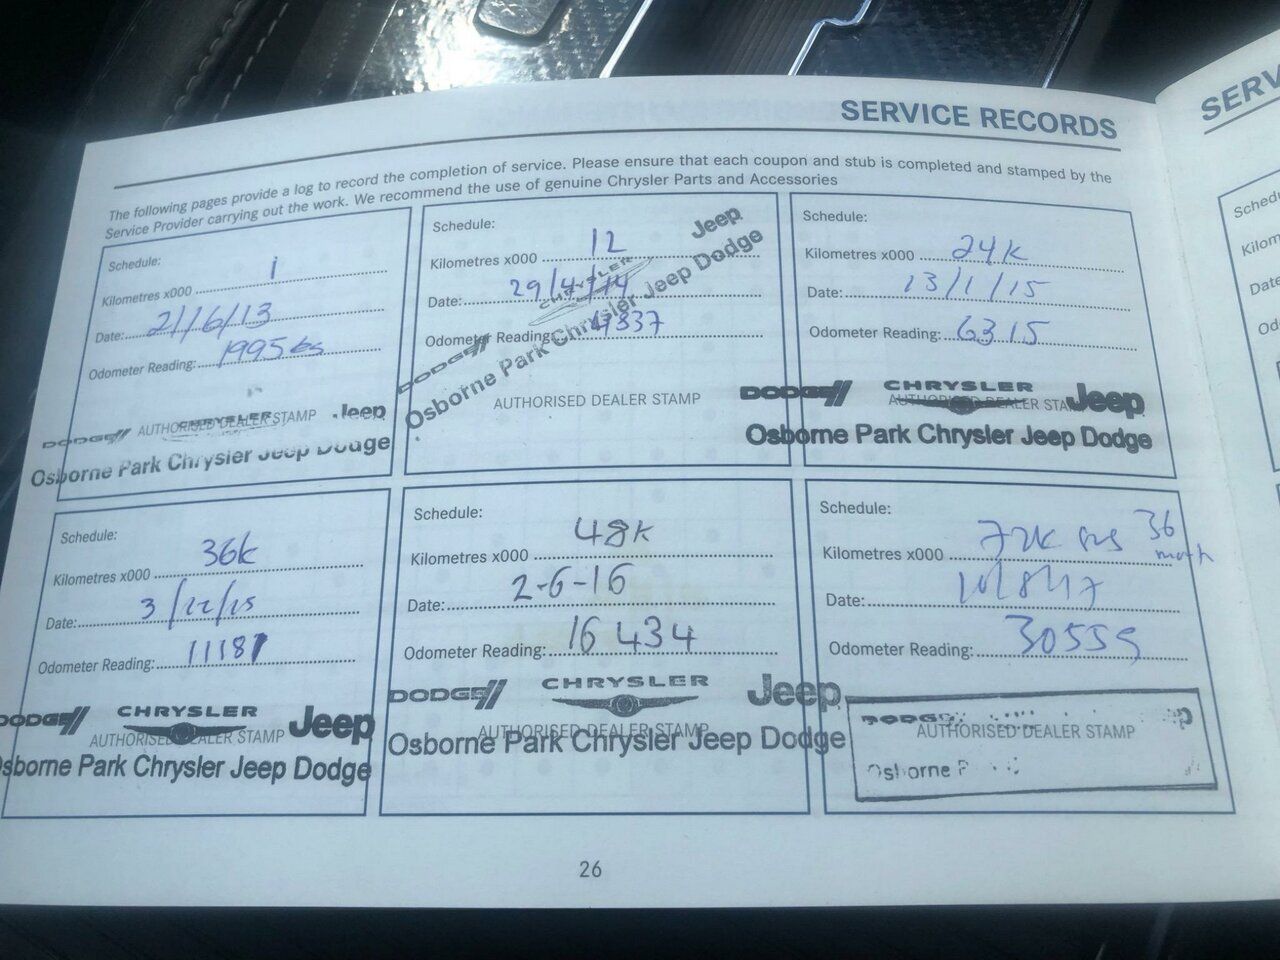 SERVICE RECORDS
SERV
The following pages provide a log to record the completion of service. Please ensure that each coupon and stub is completed and stamped by the
Service Provider carrying out the work. We recommend the use of genuine Chrysler Parts and Accessories
Schedule:
Kilometres x000 1
Date: 21/6/13
Odometer Reading: 1995
AUTHORISED DEALER STAMP
DODGE CHRYSLER Jeep
Osborne Park Chrysler Jeep Dodge
Schedule:
Kilometres x000 12
Date: 29/4/14
Odometer Reading: 4837
AUTHORISED DEALER STAMP
DODGE CHRYSLER Jeep
Osborne Park Chrysler Jeep Dodge
Schedule:
Kilometres x000 24K
Date: 13/1/15
Odometer Reading: 6315
AUTHORISED DEALER STA
DODGE CHRYSLER Jeep
Osborne Park Chrysler Jeep Dodge
Schedule:
Kilometres x000 36k
Date: 3/12/15
Odometer Reading: 11181
AUTHORISED DEALER STAMP
DODGE CHRYSLER Jeep
sborne Park Chrysler Jeep Dodge
Schedule:
Kilometres x000 48K
Date: 2-6-16
Odometer Reading: 16434
AUTHORISED DEALER STAMP
DODGE CHRYSLER Jeep
Osborne Park Chrysler Jeep Dodge
Schedule:
Kilometres x000 72K 36
month
Date:
Odometer Reading: 30559
AUTHORISED DEALER STAMP
DODGE
Osborne P
Schedu
Kilom
Date
Od
26